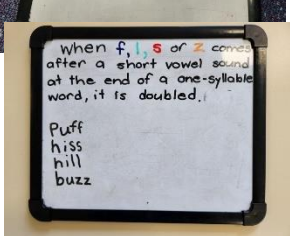 when f, l, s or z comes
after a short vowel sound
at the end of a one-syllable
word, it is doubled.
Puff
hiss
hill
buzz